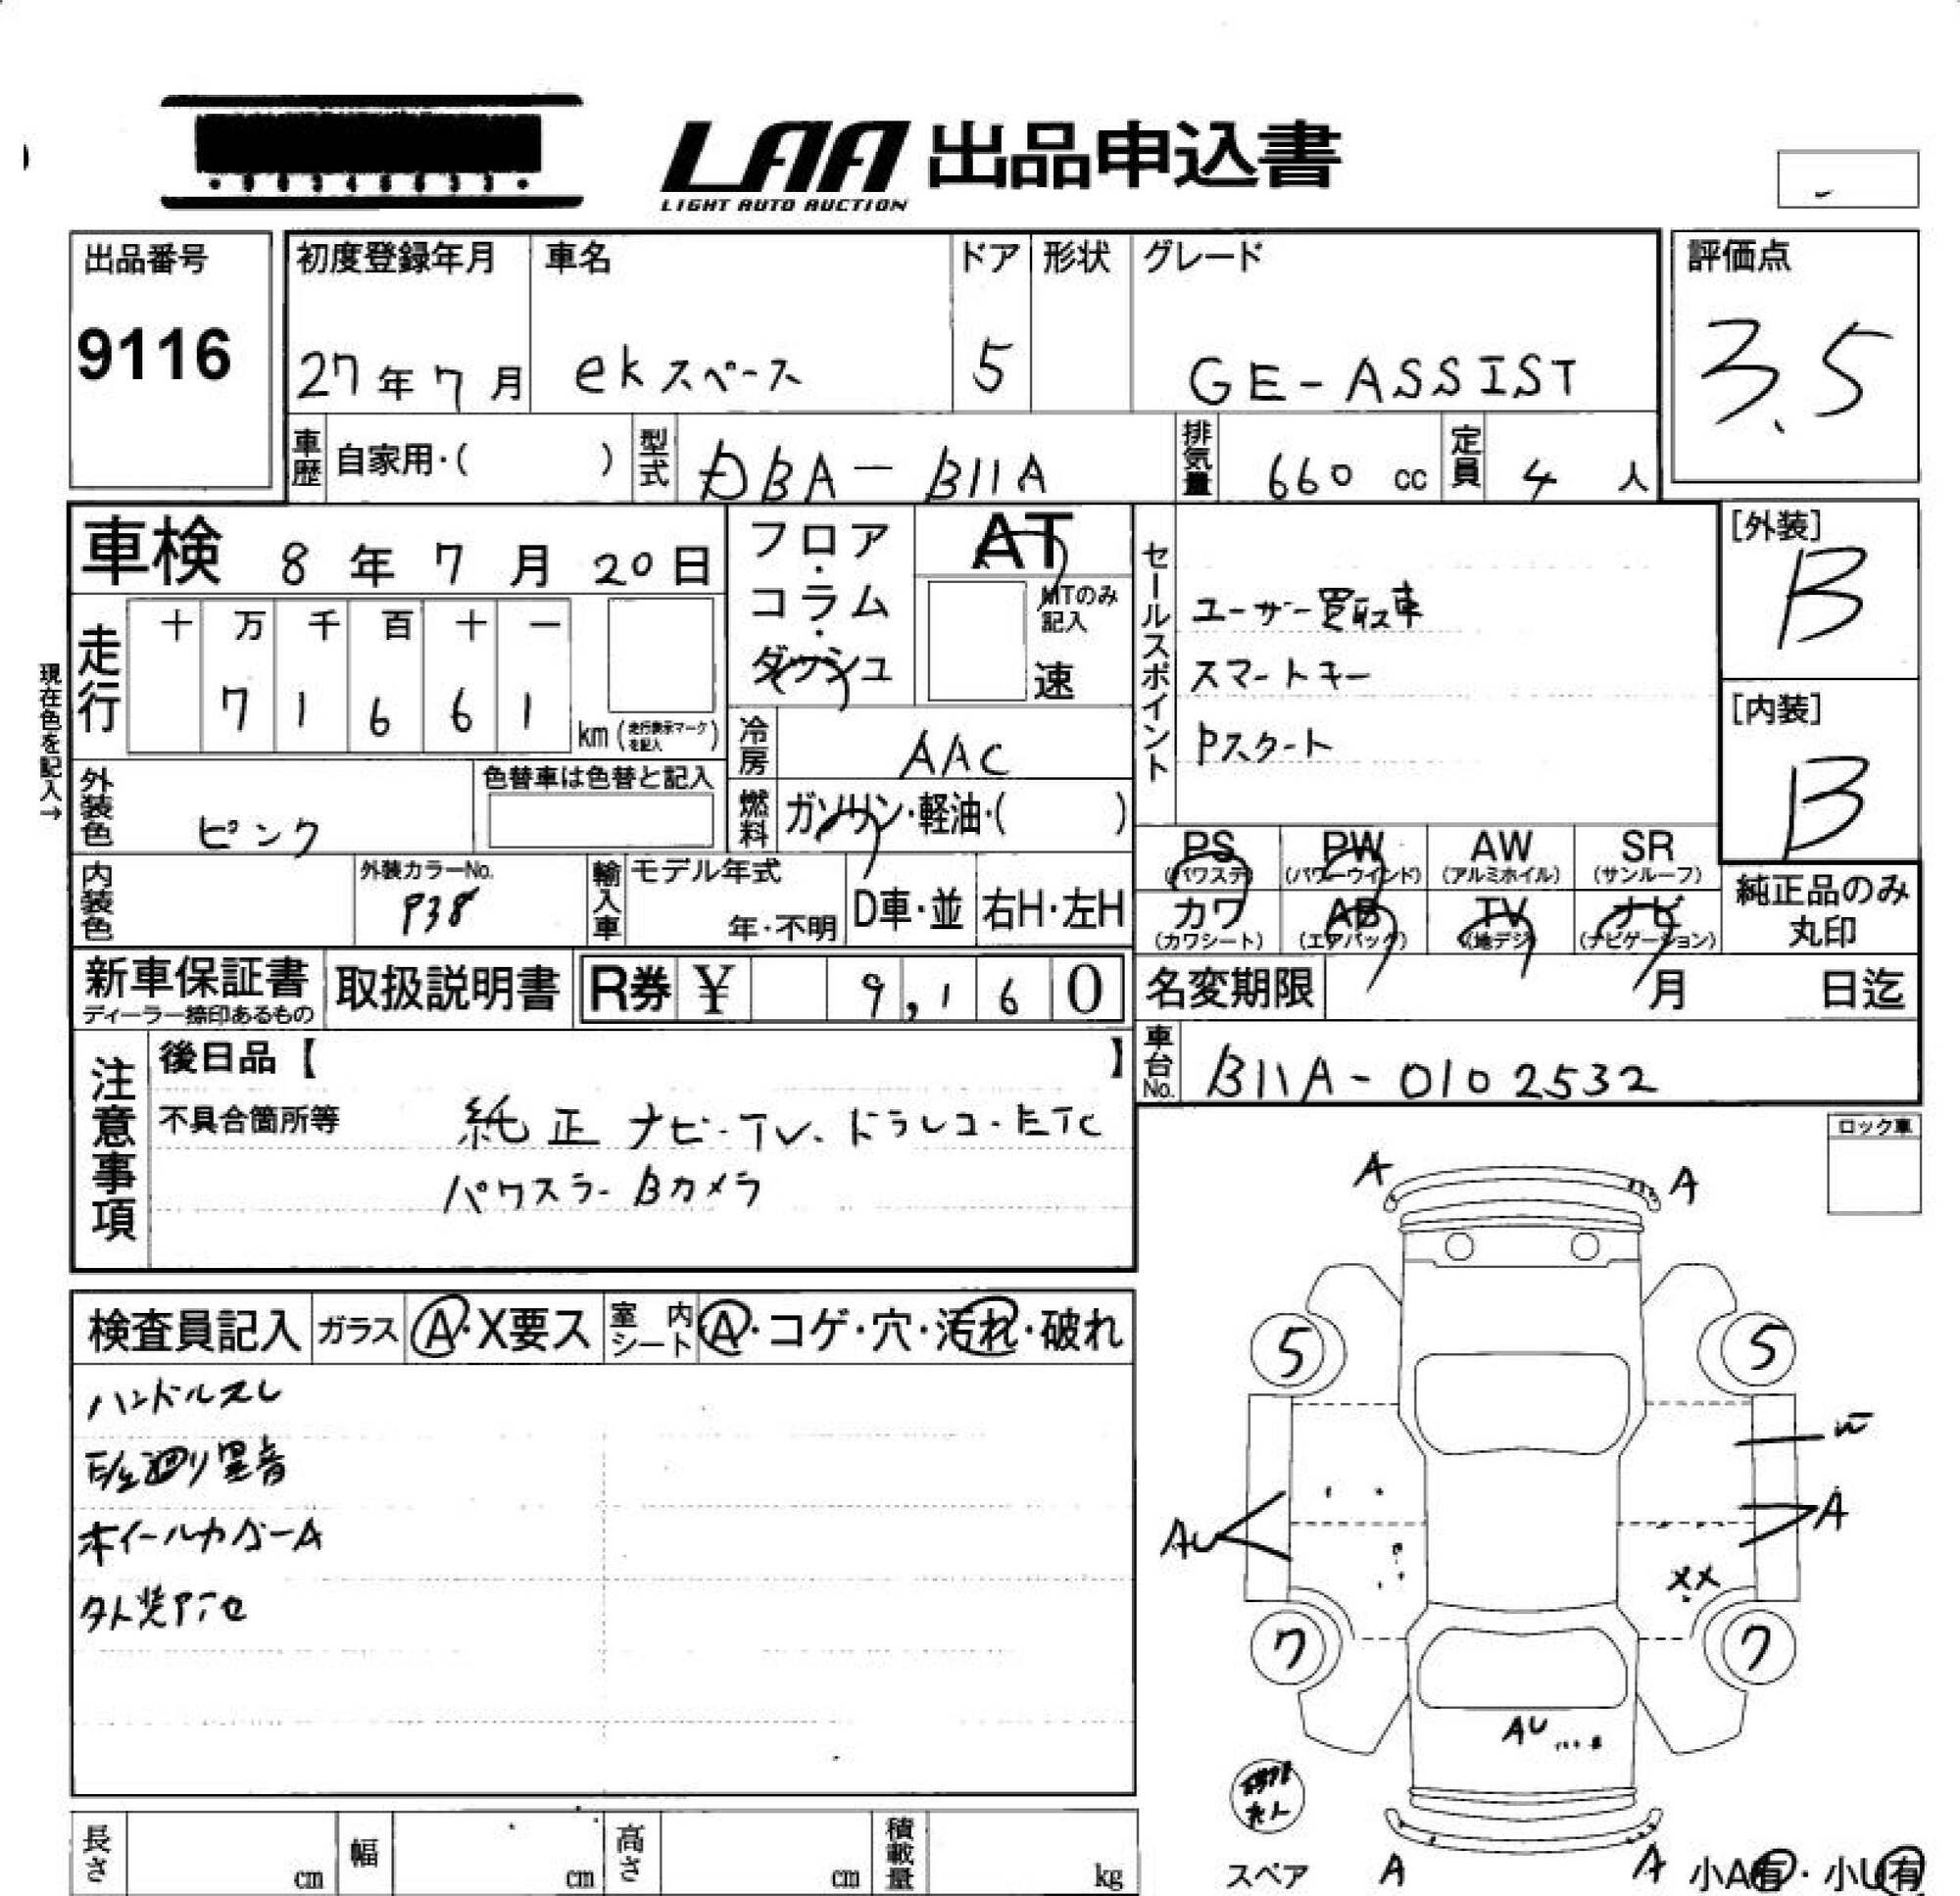 LAA 出品申込書
LIGHT AUTO AUCTION
出品番号
9116
初度登録年月
27年 7月
車名
ekスペース
ドア
5
形状
グレード
GE-ASSIST
評価点
3.5
車歴 自家用・( )
型式 DBA-B11A
排気量 660 cc
定員 4 人
車検 8年 7月 20日
フロア・コラム・ダッシュ
AT
MTのみ記入
速
セールスポイント
ユーザー買取車
スマートキー
Pスタート
[外装]
B
[内装]
B
現在色を記入→
走行
十 万 千 百 十 一
7 1 6 6 1
km (走行表示マークを記入)
冷房 AAC
外装色 ピンク
色替車は色替と記入
燃料 ガソリン・軽油・( )
PS (パワステ)
PW (パワーウインド)
AW (アルミホイル)
SR (サンルーフ)
カワ (カワシート)
AB (エアバッグ)
TV (地デジ)
ナビ (ナビゲーション)
純正品のみ丸印
内装色
外装カラーNo.
P38
輸入車
モデル年式
年・不明
D車・並
右H・左H
新車保証書
ディーラー捺印あるもの
取扱説明書
R券 ¥ 9,160
名変期限 月 日迄
車台No. B11A-0102532
注意事項
後日品【 】
不具合箇所等
純正ナビ・TV・ドラレコ・ETC
パワスラ・Bカメラ
ロック車
検査員記入
ガラス A・X要ス
室内シート A・コゲ・穴・汚れ・破れ
ハンドルスレ
ホイールカバーA
A
A
5
5
A
AU
XX
7
7
AU
スペア
A
A
小A有・小U有
長さ cm
幅 cm
高さ cm
積載量 kg